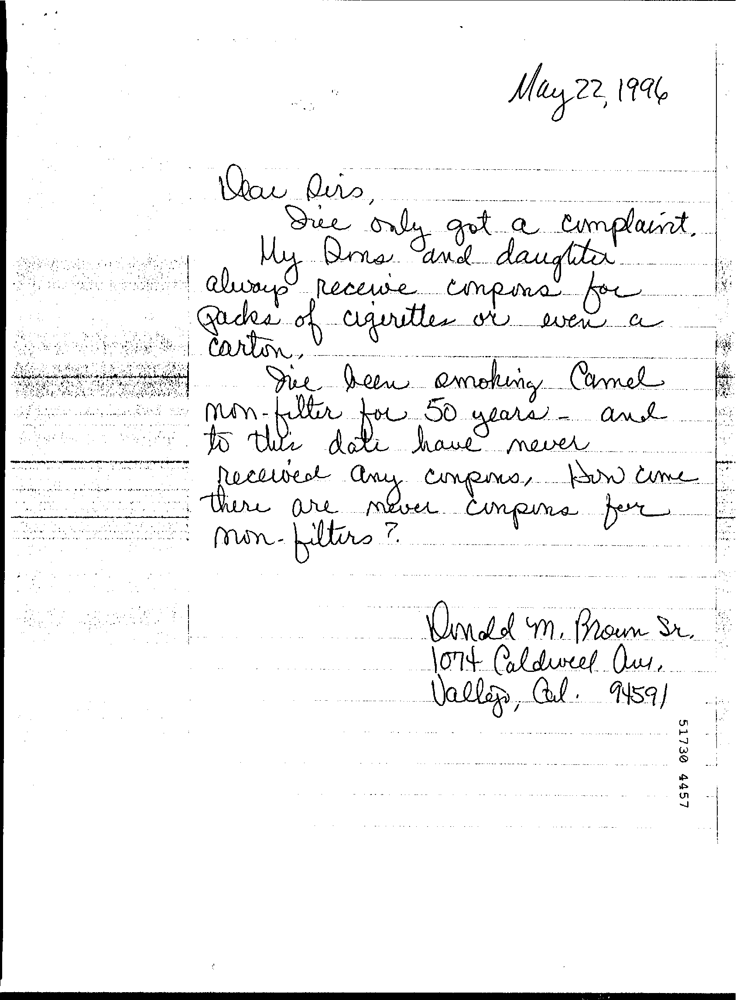 May 22, 1996
Dear Sirs,
I've only got a complaint.
My Sons and daughter
always receive coupons for
packs of cigerettes or even a
carton.
I've been smoking Camel
non-filter for 50 years - and
to this date have never
received any coupons, How come
there are never coupons for
non-filters?.
Donald M. Brown Sr.
1074 Caldwell Ave.
Vallejo, Cal. 94591
51730 4457